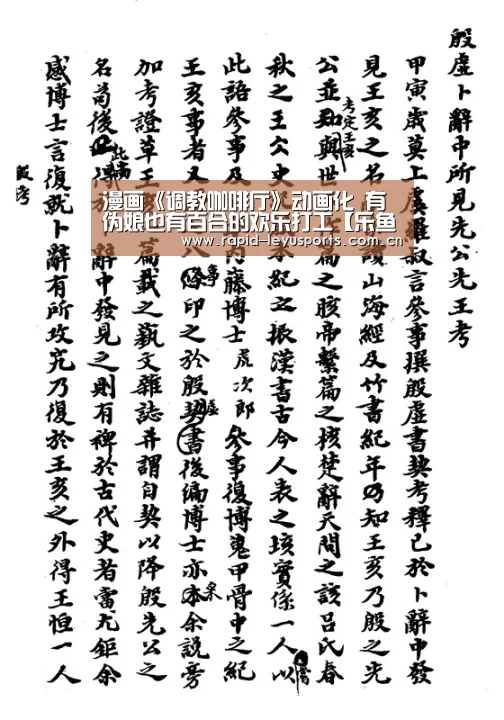 殷虛卜辭中所見先公先王考
甲寅歲莫上虞羅叔言參事撰殷虛書契考釋已於卜辭中發
見王亥之名讀山海經及竹書紀年乃知王亥乃殷之先
公並與世篇之胲帝繫篇之核楚辭天問之該呂氏春
考定王亥
秋之王史記本紀之振漢書古今人表之垓實係一人以
此語參事及內藤博士虎次郎參事復博蒐甲骨中之紀
王亥事者又八條印之於殷書後編博士亦采余說旁
加考證草王亥篇載之藝文雜誌并謂自契以降殷先公之
名苟後此尚得於辭中發見之則有裨於古代史者當尤鉅余
感博士言復就卜辭有所攻究乃復於王亥之外得王恒一人
殷考
漫画《调教咖啡厅》动画化 有
伪娘也有百合的欢乐打工【乐鱼
www.rapid-leyusports.com.cn